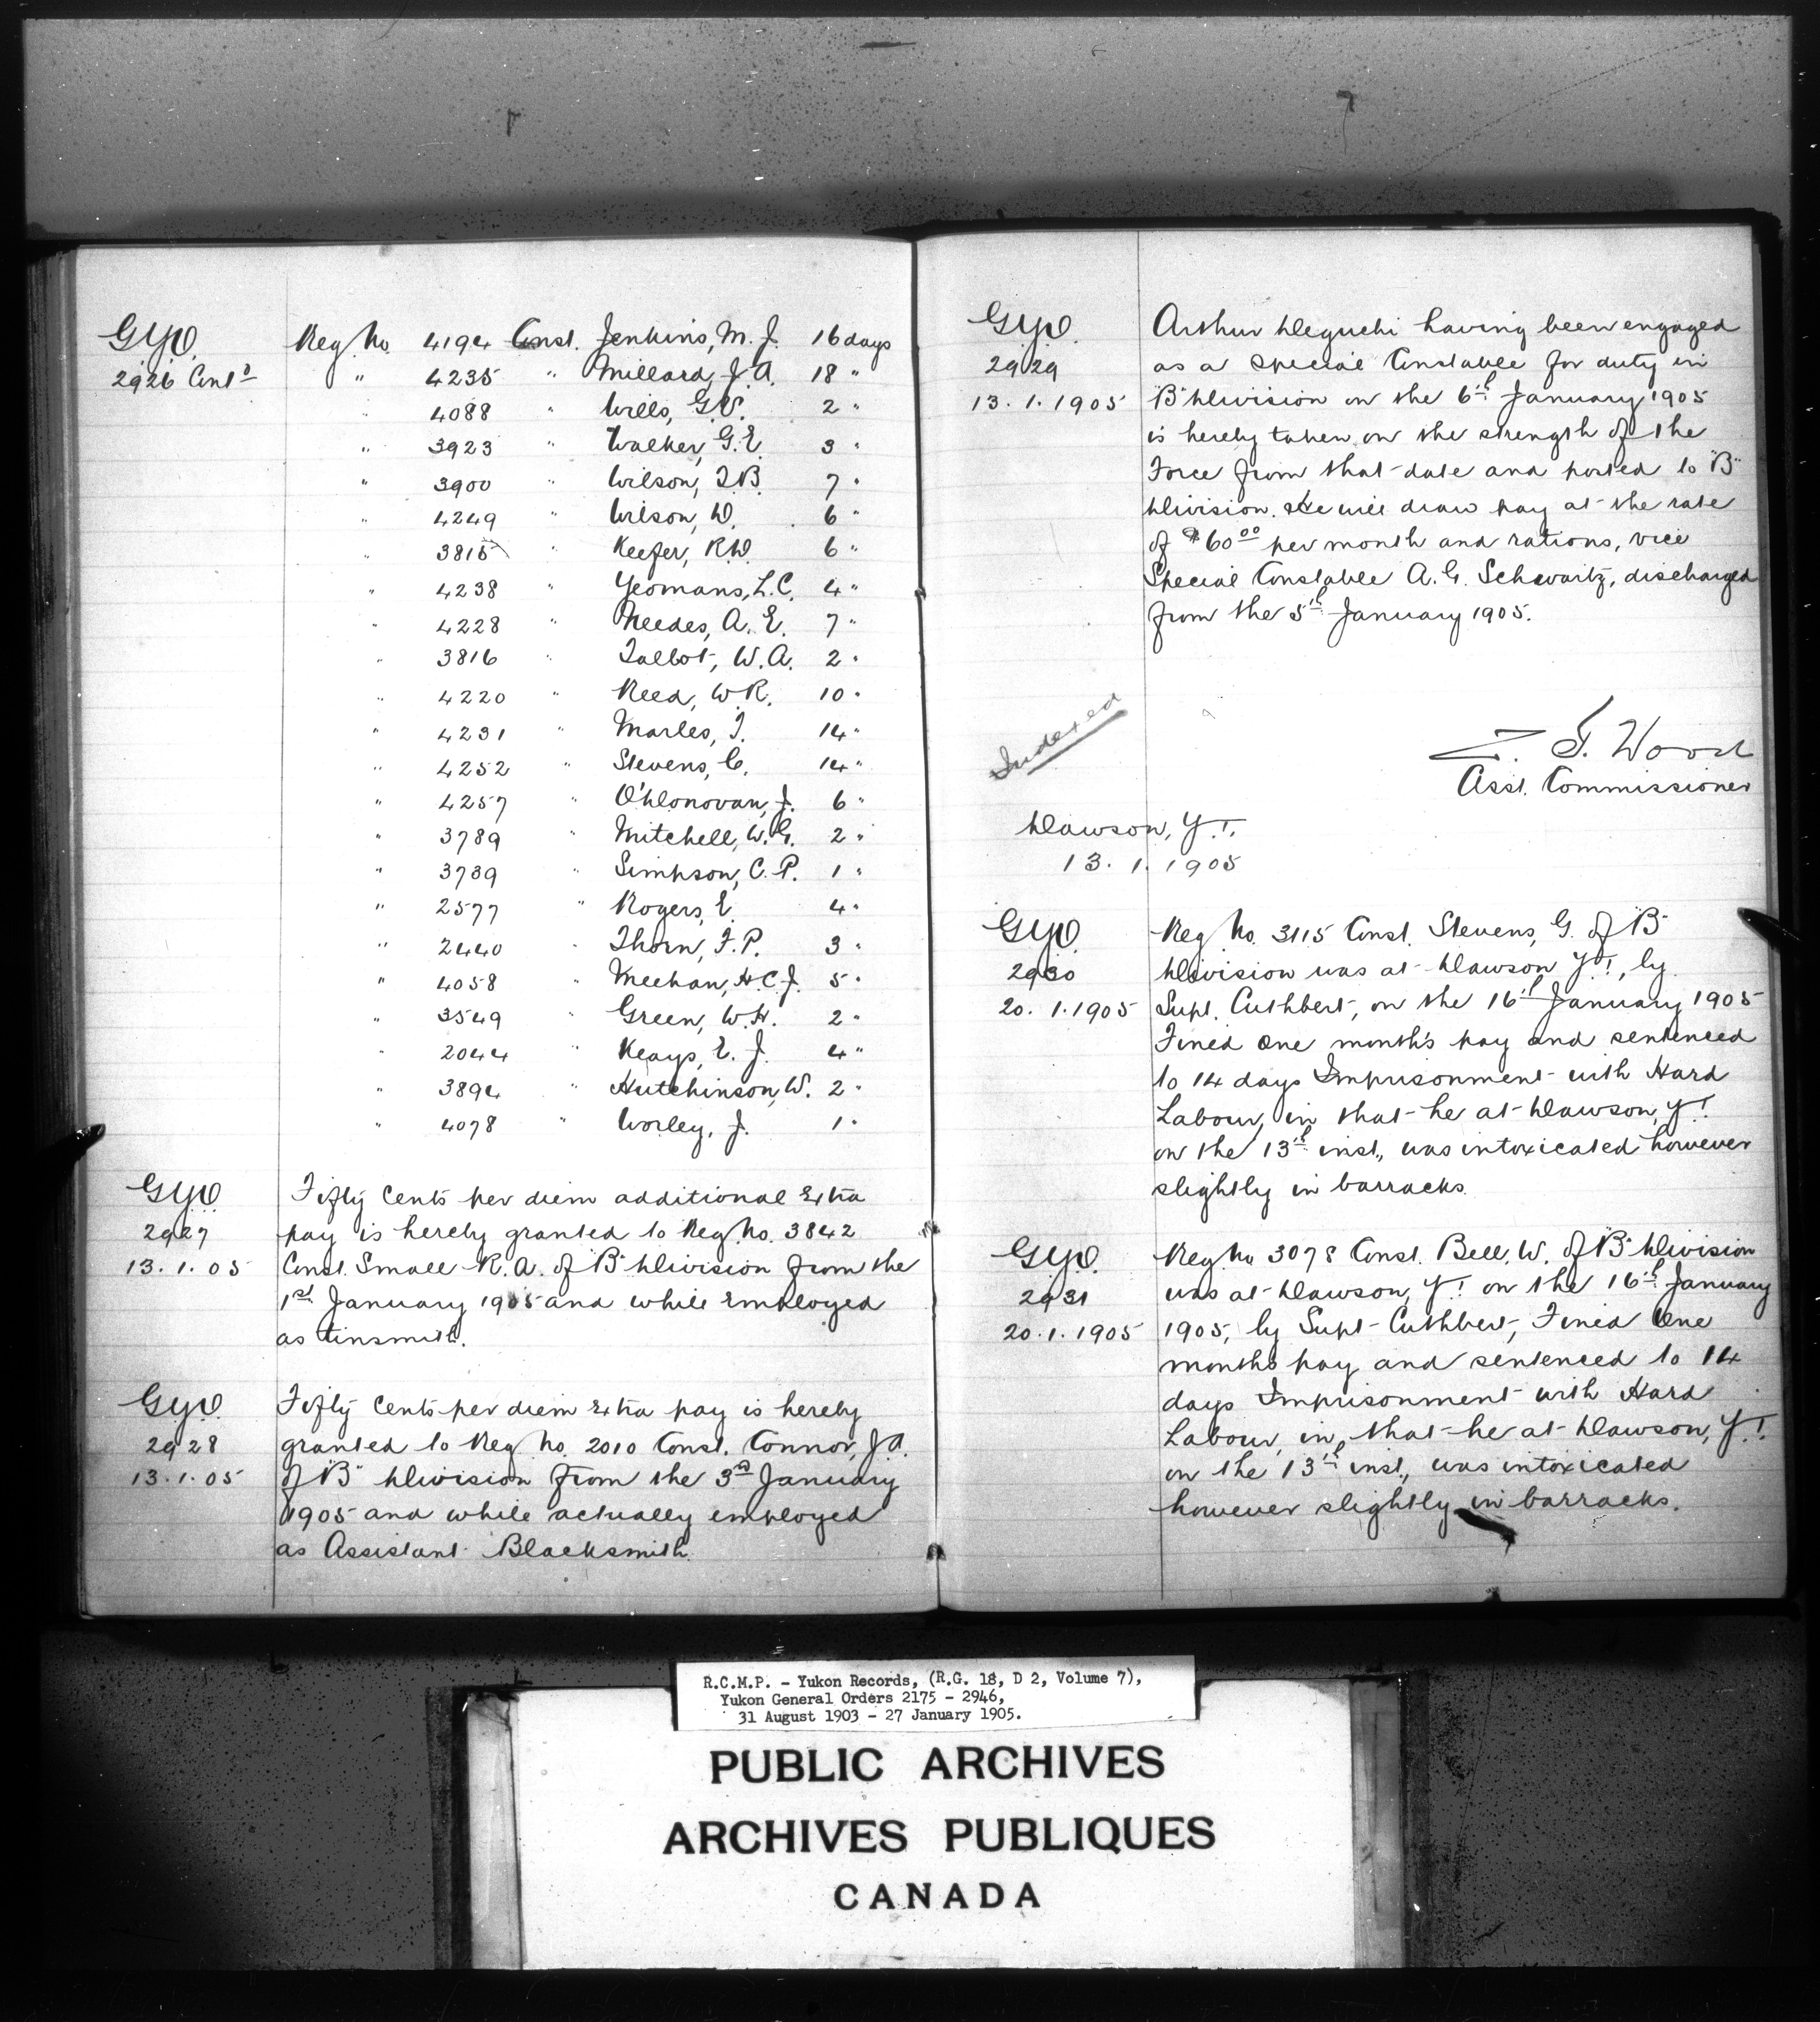 G.Y.O.
2926 Cont'd
Reg. No. 4194 Const. Jenkins, M. J. 16 days
" 4235 " Millard, J. A. 18 "
" 4088 " Wills, G.V. 2 "
" 3923 " Walker, G.E. 3 "
" 3900 " Wilson, T.B. 7 "
" 4249 " Wilson, D. 6 "
" 3815 " Keefer, R.W. 6 "
" 4238 " Yeomans, L.C. 4 "
" 4228 " Needes, A. E. 7 "
" 3816 " Talbot, W. A. 2 "
" 4220 " Reed, W.R. 10 "
" 4231 " Marles, T. 14 "
" 4252 " Stevens, C. 14 "
" 4257 " O'Donovan, J. 6 "
" 3789 " Mitchell, W.G. 2 "
" 3739 " Simpson, C. P. 1 "
" 2577 " Rogers, E. 4 "
" 2440 " Thorn, F.P. 3 "
" 4058 " Meehan, H.C.J. 5 "
" 3549 " Green, W.H. 2 "
" 2044 " Keays, E. J. 4 "
" 3894 " Hutchinson, W. 2 "
" 4078 " Worley, J. 1 "
G.Y.O.
2927
13.1.05
Fifty Cents per diem additional Extra
pay is hereby granted to Reg. No. 3842
Const. Small R.A. of "B" Division from the
1st January 1905 and while Employed
as tinsmith.
G.Y.O.
2928
13.1.05
Fifty Cents per diem Extra pay is hereby
granted to Reg No. 2010 Const. Connor, J.A.
of "B" Division from the 3rd January
1905 and while actually employed
as Assistant Blacksmith.
G.Y.O.
2929
13.1.1905
Arthur Deguchi having been engaged
as a Special Constable for duty in
"B" Division on the 6th January 1905
is hereby taken on the strength of the
Force from that date and posted to "B"
Division. He will draw pay at the rate
of $60.00 per month and rations, vice
Special Constable A.G. Schwartz, discharged
from the 5th January 1905.
Indexed
Z. T. Wood
Asst. Commissioner
Dawson, Y.T.
13.1.1905
G.Y.O.
2930
20.1.1905
Reg. No. 3115 Const. Stevens, G. of "B"
Division was at Dawson Y.T., by
Supt. Cuthbert, on the 16th January 1905
Fined One month's pay and sentenced
to 14 days Imprisonment with Hard
Labour, in that he at Dawson, Y.T.
on the 13th inst., was intoxicated however
slightly in barracks.
G.Y.O.
2931
20.1.1905
Reg. No. 3078 Const. Bell, W. of "B" Division
was at Dawson, Y.T. on the 16th January
1905, by Supt Cuthbert, Fined One
months pay and sentenced to 14
days Imprisonment with Hard
Labour, in that he at Dawson, Y.T.
on the 13th inst., was intoxicated
however slightly in barracks.
R.C.M.P. - Yukon Records, (R.G. 18, D 2, Volume 7),
Yukon General Orders 2175 - 2946,
31 August 1903 - 27 January 1905.
PUBLIC ARCHIVES
ARCHIVES PUBLIQUES
CANADA